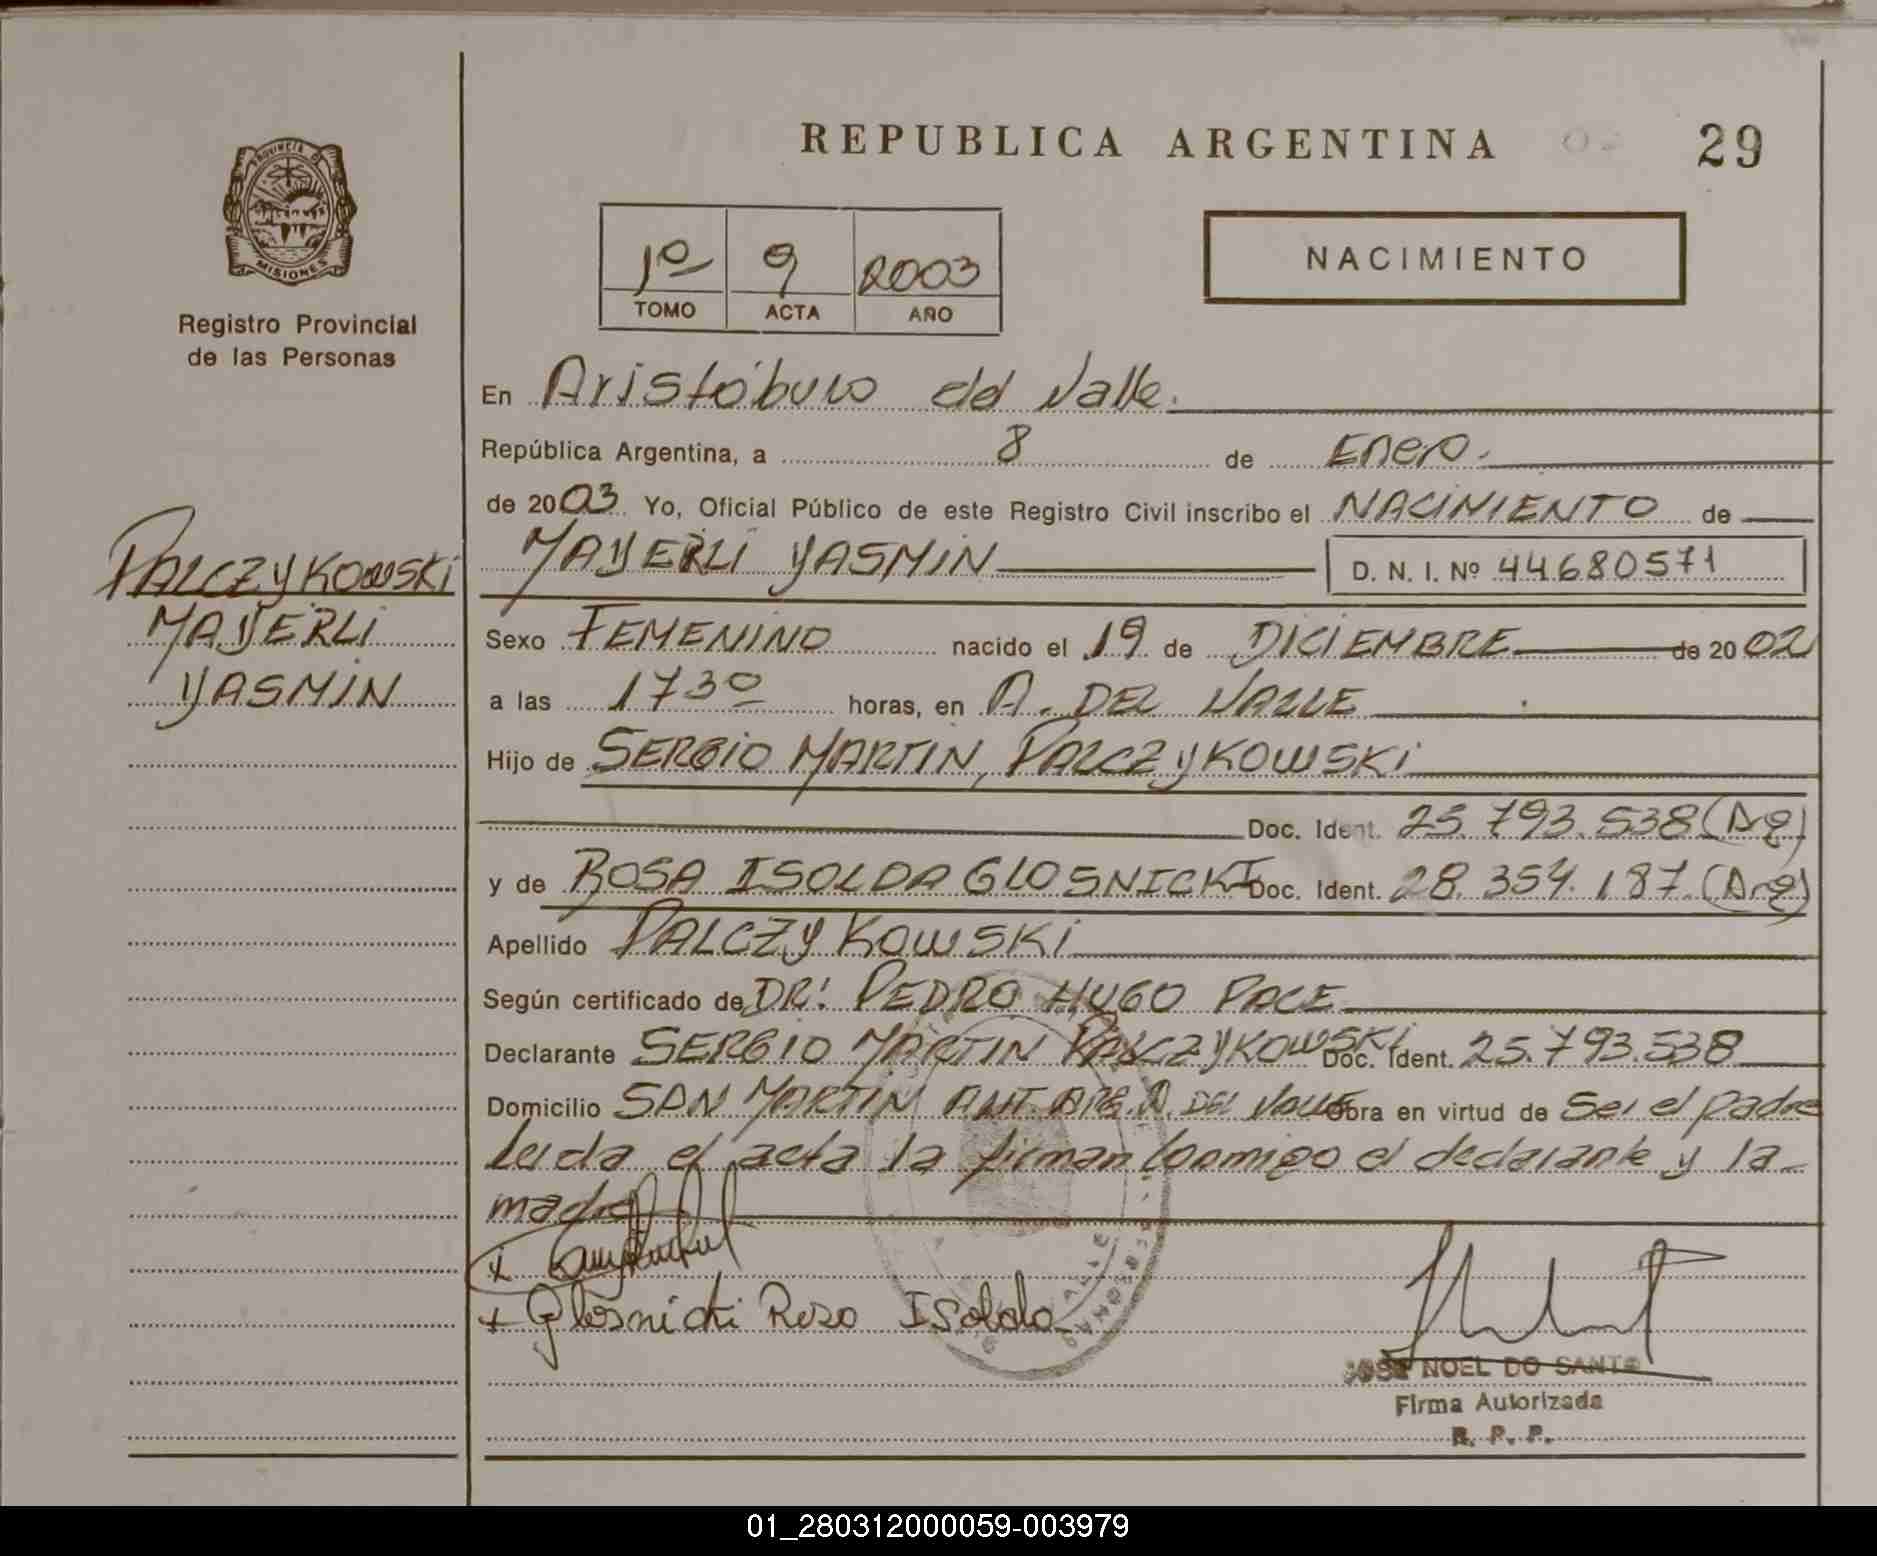 REPUBLICA ARGENTINA
29
PROVINCIA D
MISIONES
Registro Provincial
de las Personas
1º 9 2003
TOMO ACTA AÑO
NACIMIENTO
En Aristóbulo del Valle.
República Argentina, a 8 de Enero.
de 2003 Yo, Oficial Público de este Registro Civil inscribo el NACIMIENTO de
MAYERLI YASMIN D. N. I. Nº 44680571
PALCZYKOWSKI
MAYERLI
YASMIN
Sexo FEMENINO nacido el 19 de DICIEMBRE de 2002
a las 1730 horas, en A. DEL VALLE
Hijo de SERGIO MARTIN, PALCZYKOWSKI
Doc. Ident. 25.793.538 (Arg)
y de ROSA ISOLDA GLOSNICKI Doc. Ident. 28.354.187. (Arg)
Apellido PALCZYKOWSKI
Según certificado de DR: PEDRO HUGO PACE
Declarante SERGIO MARTIN PALCZYKOWSKI Doc. Ident. 25.793.538
Domicilio SAN MARTIN ANT. ARG. A. DEL Valle Obra en virtud de Ser el padre
Leida el acta la firman Conmigo el declarante y la
madre
x
+ Glosnicki Rosa Isolda
JOSE NOEL DO SANTO
Firma Autorizada
R. P. P.
01_280312000059-003979